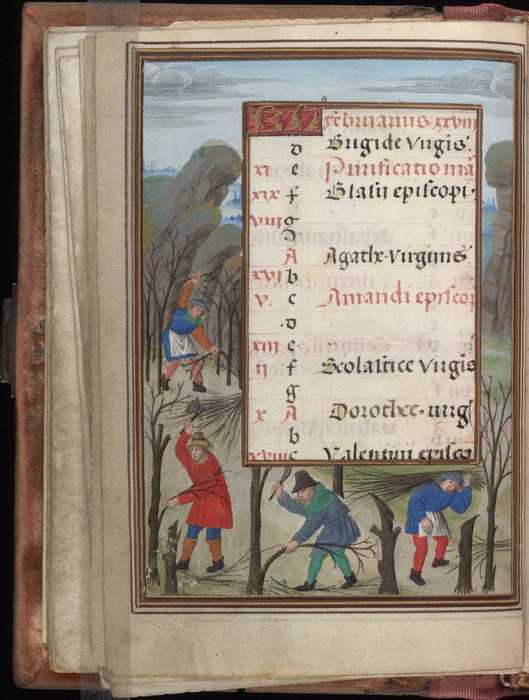 februarius xxviii
d Brigide virgis.
xi e Purificatio ma
xix f Blasii episcopi
viii g
A Agathe virginis
xvi b
v. c Amandi episcop
.d
xiii e
ii f Scolastice virgis
g
x A Dorothee virg
b
xviii c Valentini episco